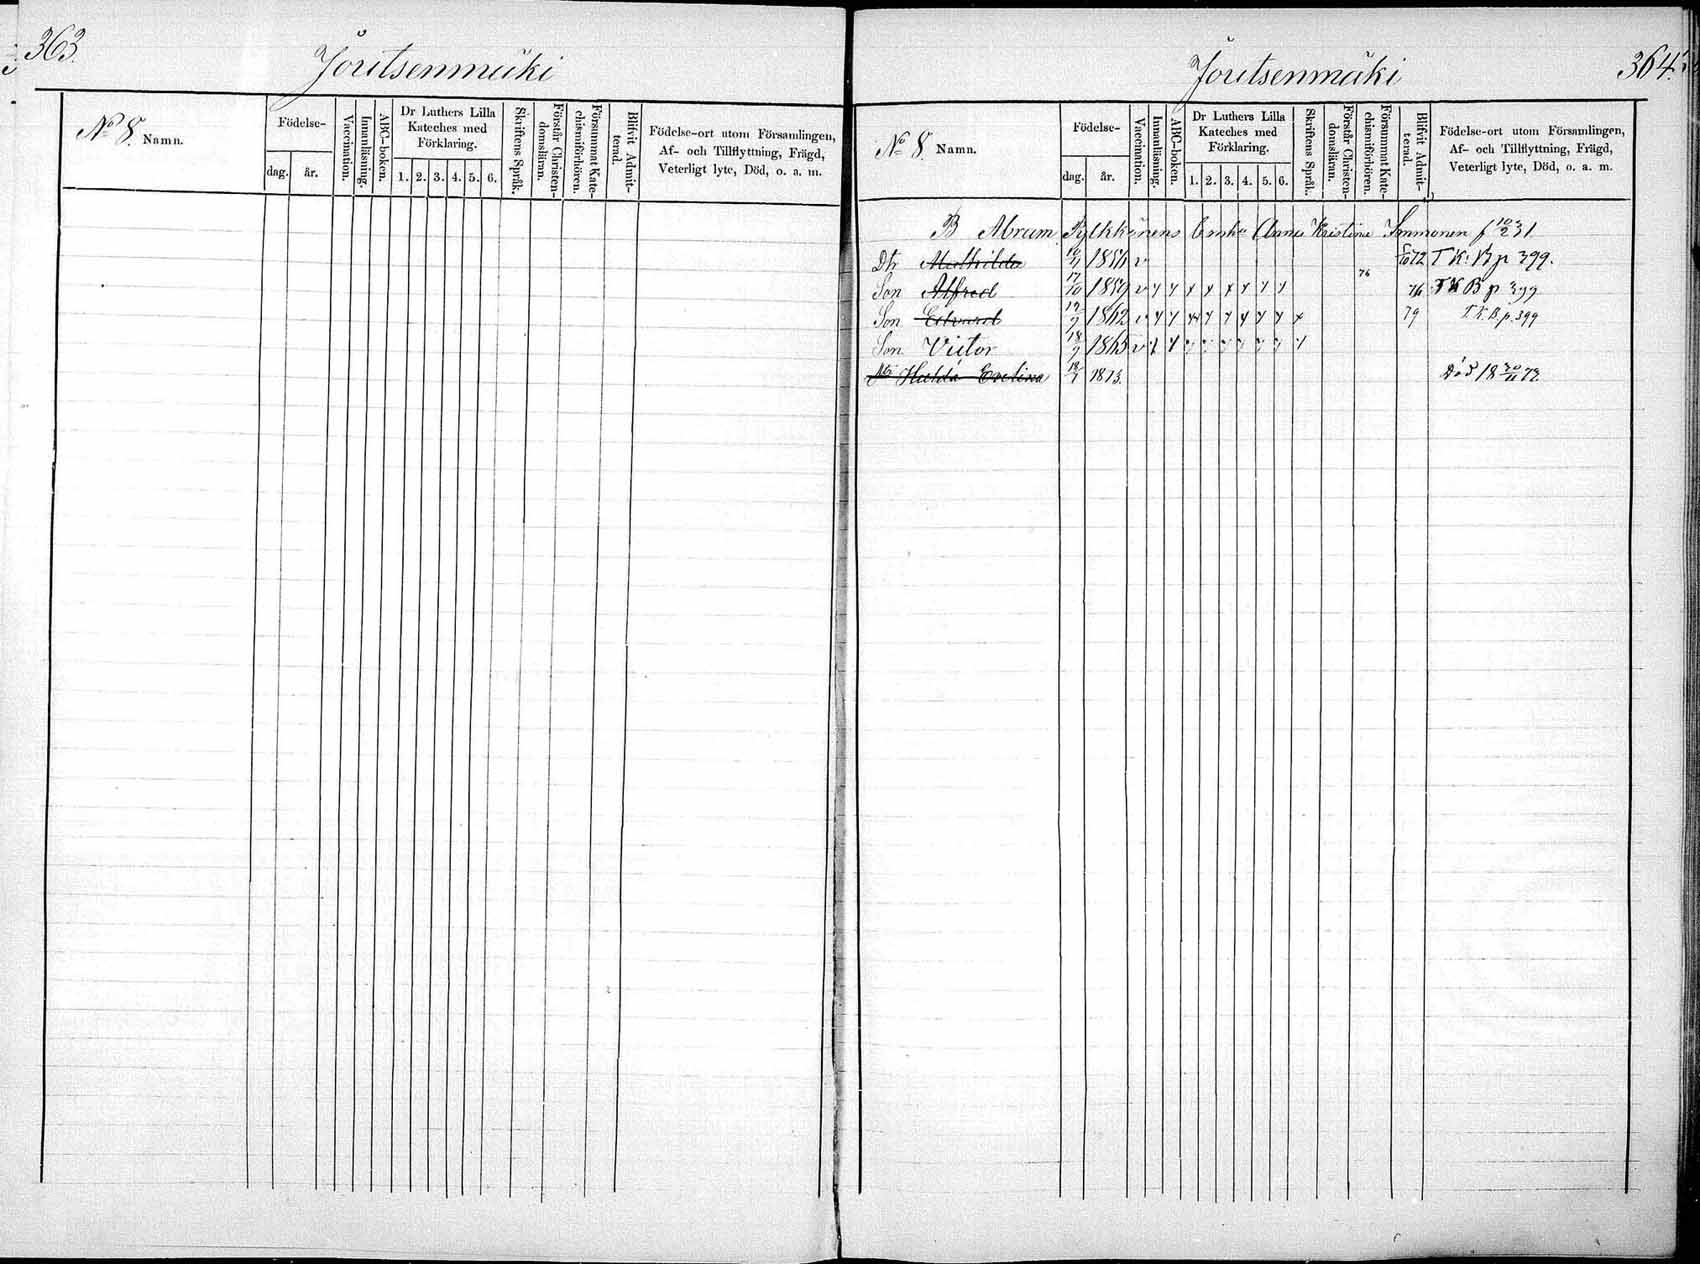 363.
Joutsenmäki
No 8. Namn.
Födelse-
dag. år.
Vaccination.
Innanläsning.
ABC-boken.
Dr Luthers Lilla
Kateches med
Förklaring.
1. 2. 3. 4. 5. 6.
Skriftens Språk.
Förstår Christen-
domslärann.
Försummat Kate-
chismiförhören.
Blifvit Admit-
terad.
Födelse-ort utom Församlingen,
Af- och Tillflyttning, Frägd,
Veterligt lyte, Död, o. a. m.
Joutsenmäki
364.
No 8. Namn.
Födelse-
dag. år.
Vaccination.
Innanläsning.
ABC-boken.
Dr Luthers Lilla
Kateches med
Förklaring.
1. 2. 3. 4. 5. 6.
Skriftens Språk.
Förstår Christen-
domslärann.
Försummat Kate-
chismiförhören.
Blifvit Admit-
terad.
Födelse-ort utom Församlingen,
Af- och Tillflyttning, Frägd,
Veterligt lyte, Död, o. a. m.
B Abram Pylkkänens Enka Anna Kristina Immonen f 10/2 31
Dtr Mathilda 1856 v 72 T. K. B p 399.
Son Alfred 17/10 1859 v 76 76 T K B p 399
Son Edvard 19/9 1862 v 79 T. K. B. p. 399
Son Victor 18/9 1865 v
Hulda Evelina 18/7 1873. Död 18 20/11 73